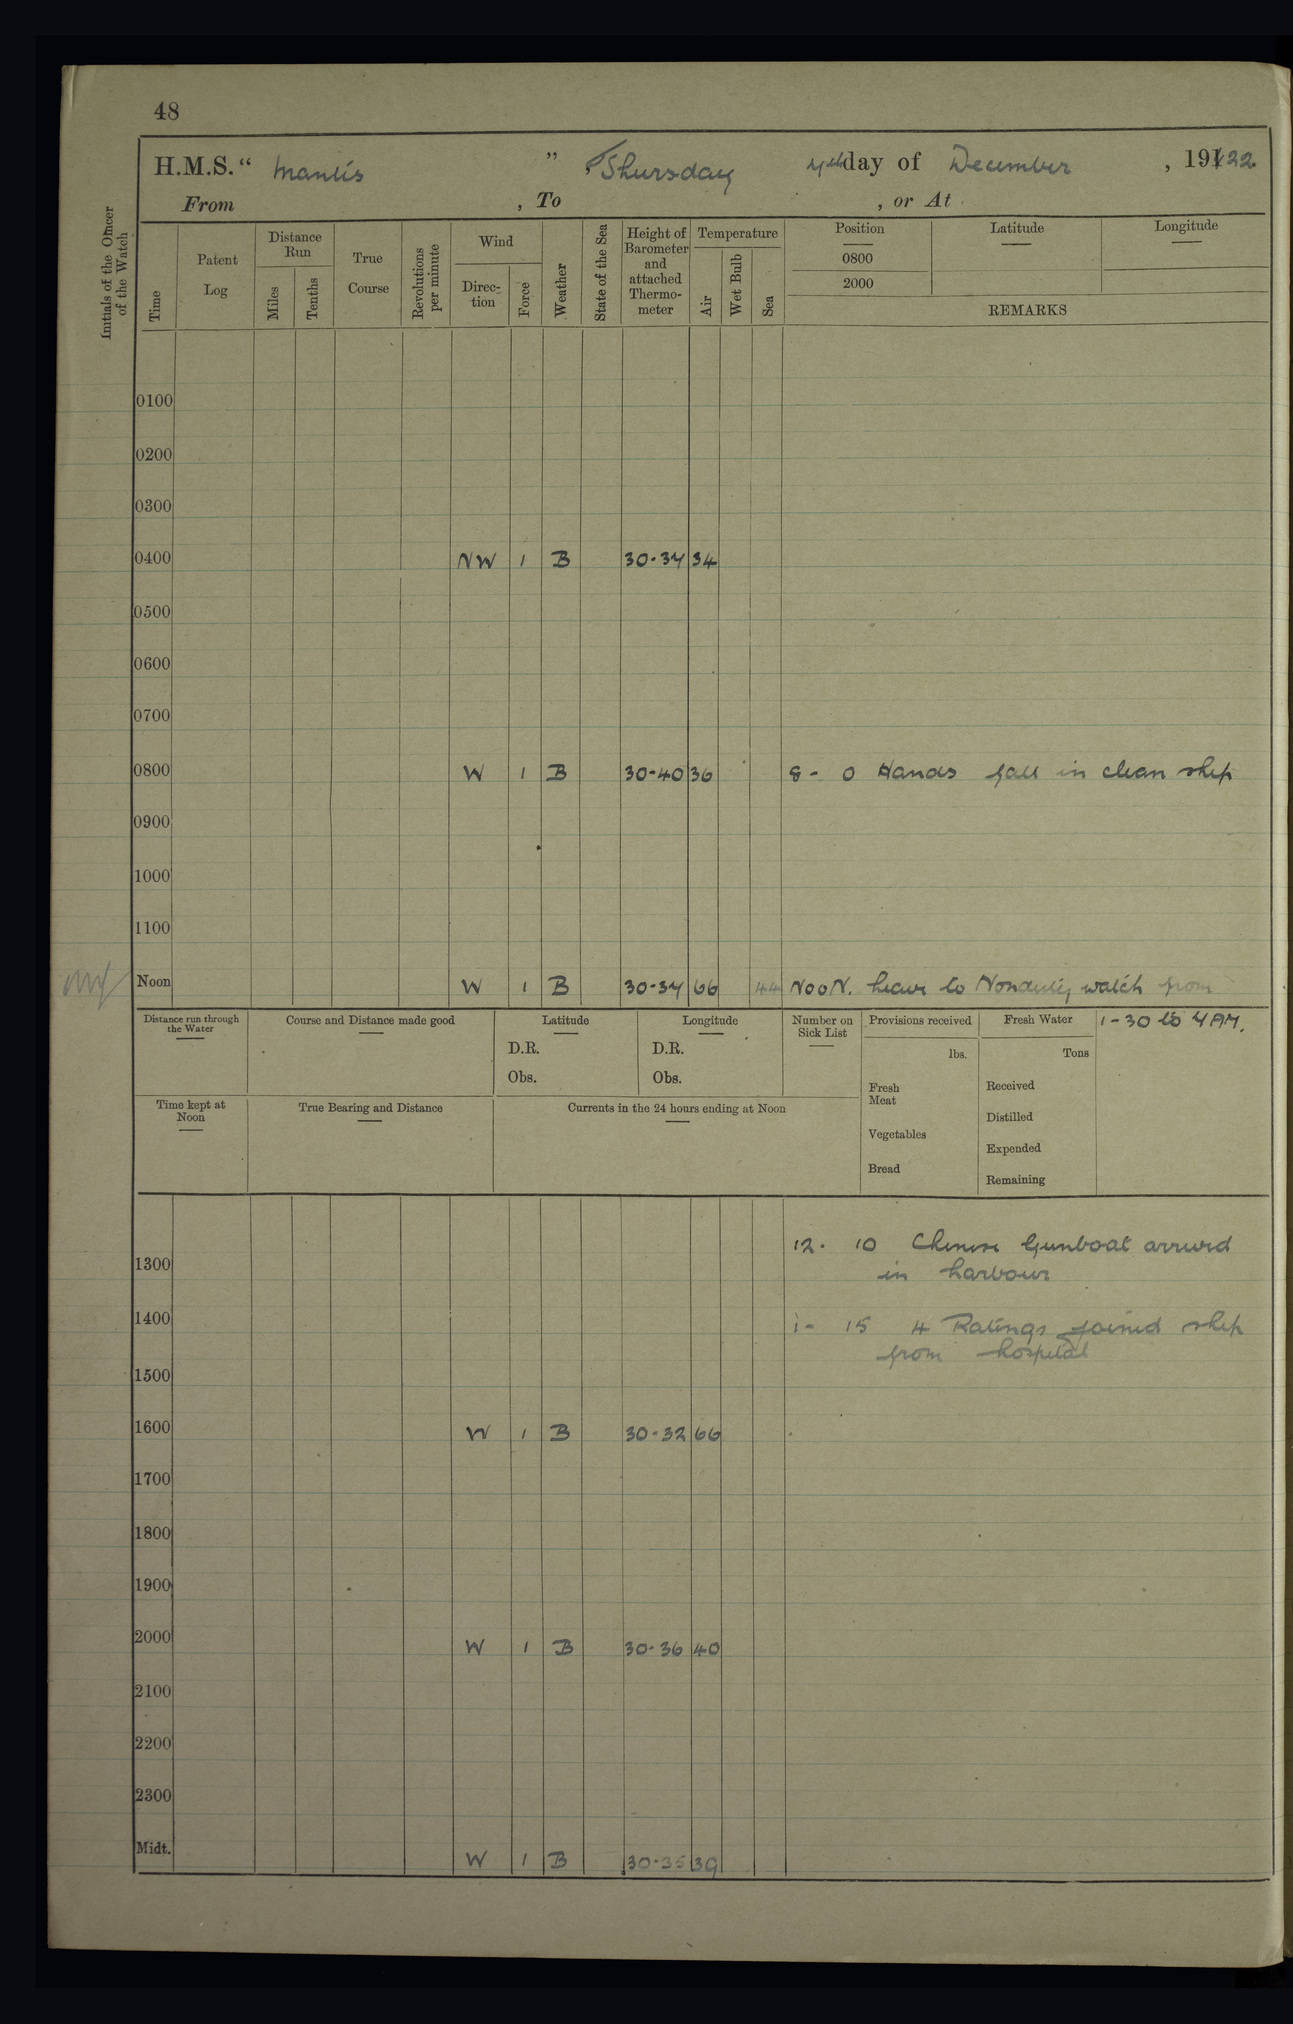 48
H.M.S. “ Mantis ” Thursday 7th day of December , 1922
From , To , or At
Initials of the Officer of the Watch
Time
Patent Log
Distance Run
Miles
Tenths
True Course
Revolutions per minute
Wind
Direc-tion
Force
Weather
State of the Sea
Height of Barometer and attached Thermo-meter
Temperature
Air
Wet Bulb
Sea
Position
0800
2000
Latitude
Longitude
REMARKS
0100
0200
0300
0400 NW 1 B 30.37 34
0500
0600
0700
0800 W 1 B 30-40 36 8 - 0 Hands fall in clean ship
0900
1000
1100
Noon W 1 B 30-37 66 44 NooN. leave to Nonduty watch from
1-30 to 7 AM.
Distance run through the Water
Course and Distance made good
Latitude
D.R.
Obs.
Longitude
D.R.
Obs.
Number on Sick List
Provisions received
lbs.
Fresh Meat
Vegetables
Bread
Fresh Water
Tons
Received
Distilled
Expended
Remaining
Time kept at Noon
True Bearing and Distance
Currents in the 24 hours ending at Noon
12. 10 Chinese Gunboat arrived
1300
in harbour
1400 1 - 15 4 Ratings joined ship
from hospital
1500
1600 W 1 B 30-32 66
1700
1800
1900
2000 W 1 B 30-36 40
2100
2200
2300
Midt. W 1 B 30-35 39